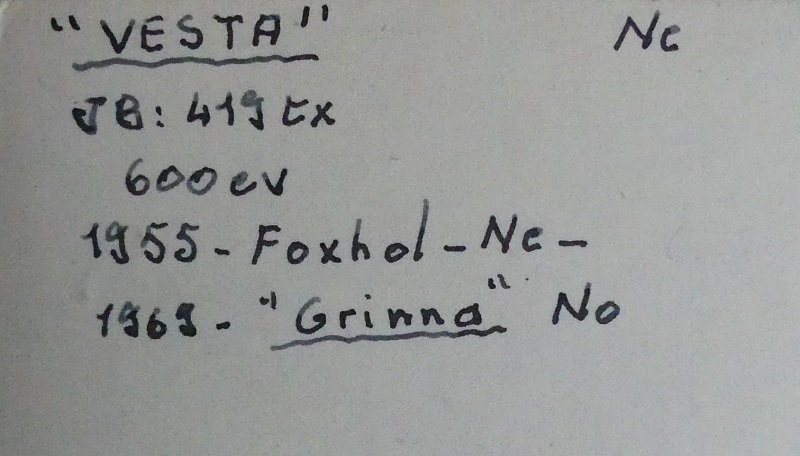 "VESTA" Ne
JB: 419 Ex
600 ev
1955 - Foxhol - Ne -
1969 - "Grinna" No